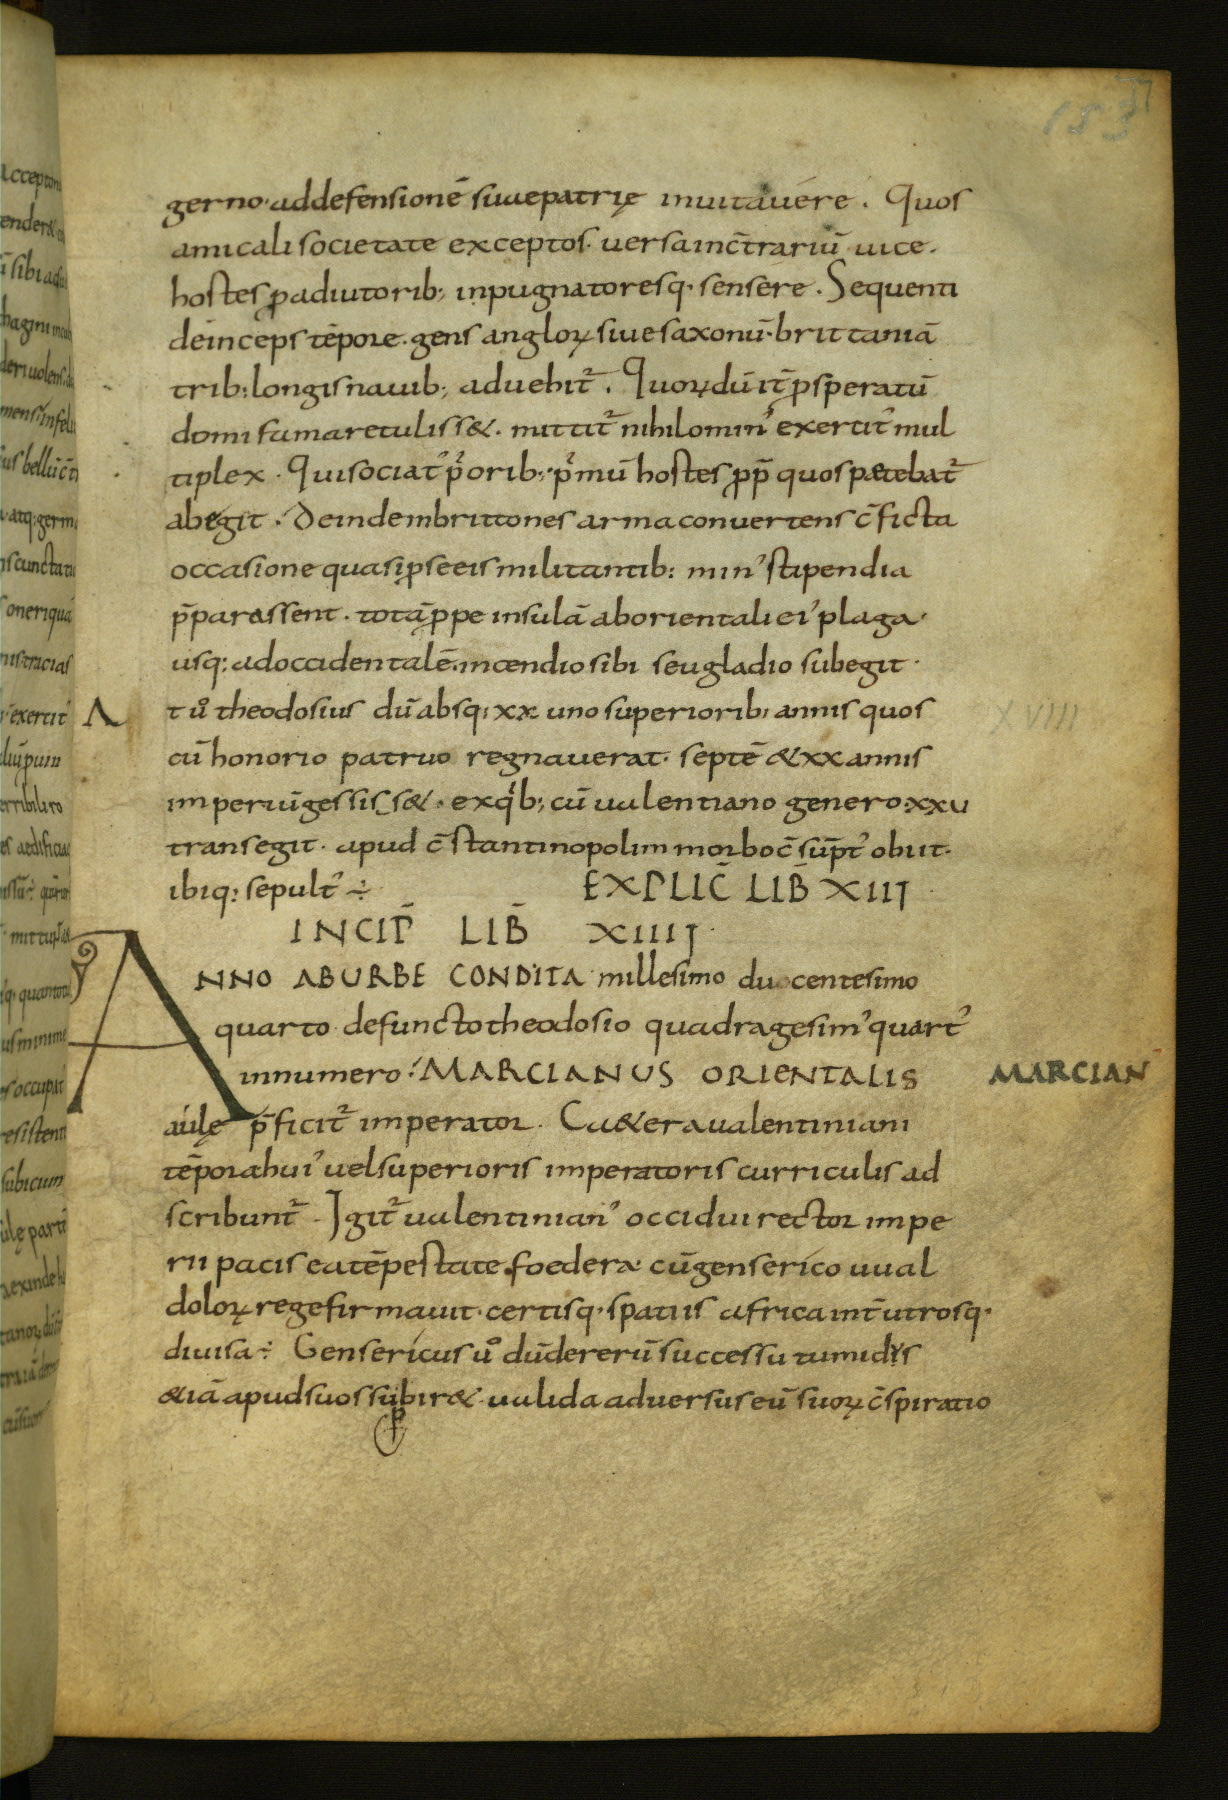 gerno· ad defensionē suae patrię inuitauére. Quos
amicali societate exceptos· uersa in c̄trariū uice.
hostes ꝓ adiutorib; inpugnatoresq· sensére. Sequenti
deinceps tēpore· gens angloꝝ siue saxonū· brittaniā
trib; longis nauib; aduehit᷒. Quoꝝ dū it̄ ꝓsperatū
domi fama retuliss&. mittit᷒ nihilominꝰ exercitꝰ mul
tiplex. Qui sociatꝰ pͥorib; pͥmū hostes ꝓp̄ quos pætebat᷒
abegit. Deinde in brittones arma conuertens c̄ficta
occasione quasi ꝓ se eis militantib; minꝰ stipendia
p̄parassent. totā p̱pe insulā ab orientali eiꝰ plaga·
usq; ad occidentalē· incendio sibi seu gladio subegit·
Λ tͥ uͦ theodosius dū absq; xx uno superiorib; annis quos
cū honorio patruo regnauerat· septē & xx annis
imperiū gessiss&. ex qͥb; cū ualentiano genero· xxv
transegit. apud c̄stantinopolim morbo c̄sūptꝰ obiit·
ibiq; sepultꝰ ÷ EXPLIC̄ LIB̄ XIIJ
INCIP̄ LIB̄ XIIIJ
ANNO AB URBE CONDITA millesimo du centesimo
quarto· defuncto theodosio quadragesimꝰ quartꝰ
in numero· MARCIANUS ORIENTALIS
MARCIAN
aulę p̄ficit᷒ imperator. Ca&era ualentiniani
tēpora huiꝰ uel superioris imperatoris curriculis ad
scribunt᷒. Igit᷒ ualentinianꝰ occidui rector impe
rii pacis ea tēpestate foedera cū genserico uual
doloꝝ rege firmauit· certisq· spatiis africa int̄ utrosq·
diuisa ÷ Gensericus uͦ dū de rerū successu tumidꝰs
&iā apud suos supbir&· ualida aduersus eū suoꝝ c̄spiratio
XVIII
153